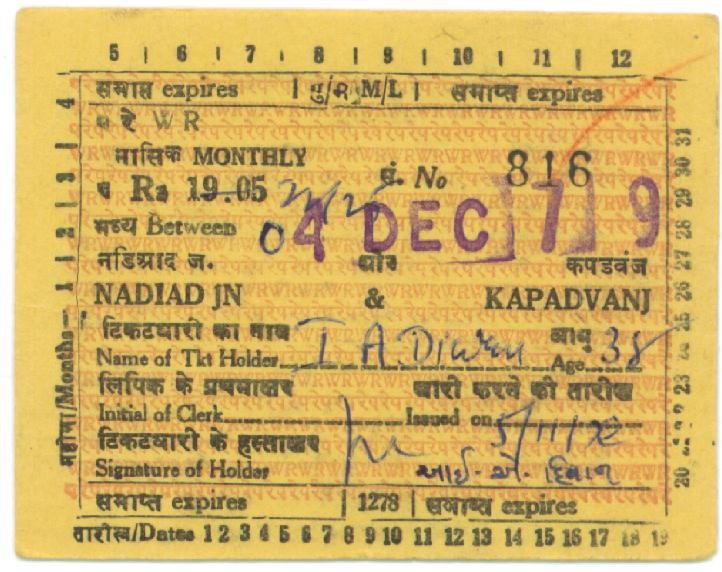 5 | 6 | 7 | 8 | 9 | 10 | 11 | 12
समाप्त expires | पु/म M/L | समाप्त expires
प रे W R
मासिक MONTHLY सं. No 816
Rs 19.05
मध्य Between 04 DEC 79
नडिआद ज. और कपडवंज
NADIAD JN & KAPADVANJ
टिकटधारी का नाम आयु
Name of Tkt Holder I A Diwan Age 38
लिपिक के प्रथमाक्षर जारी करने की तारीख
Initial of Clerk Issued on 5/11/
टिकटधारी के हस्ताक्षर
Signature of Holder આઈ. એ. દિવાન
समाप्त expires | 1278 | समाप्त expires
तारीख/Dates 1 2 3 4 5 6 7 8 9 10 11 12 13 14 15 16 17 18 19
महीना/Months 1 | 2 | 3 | 4
20 23 24 25 26 27 28 29 30 31